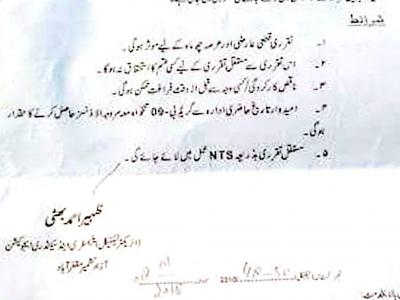 شرائط
۱۔ تقرری قطعی عارضی اور عرصہ چھ ماہ کے لیے موثر ہوگی۔
۲۔ اس تقرری سے مستقل تقرری کے لیے کسی قسم کا استحقاق نہ ہوگا۔
۳۔ ناقص کارکردگی/کسی وجہ سے قبل از وقت فراغت ممکن ہوگی۔
۴۔ امیدوار تاریخ حاضری ادارہ سے گریڈ بی-09 تنخواہ معہ مروجہ الاؤنسز حاصل کرنے کا حقدار
ہوگی۔
۵۔ مستقل تقرری بذریعہ NTS عمل میں لائے جائے گی۔
ظہیر احمد بھٹی
ڈائریکٹر ایلیمنٹری اینڈ سیکنڈری ایجوکیشن
آزاد کشمیر مظفر آباد